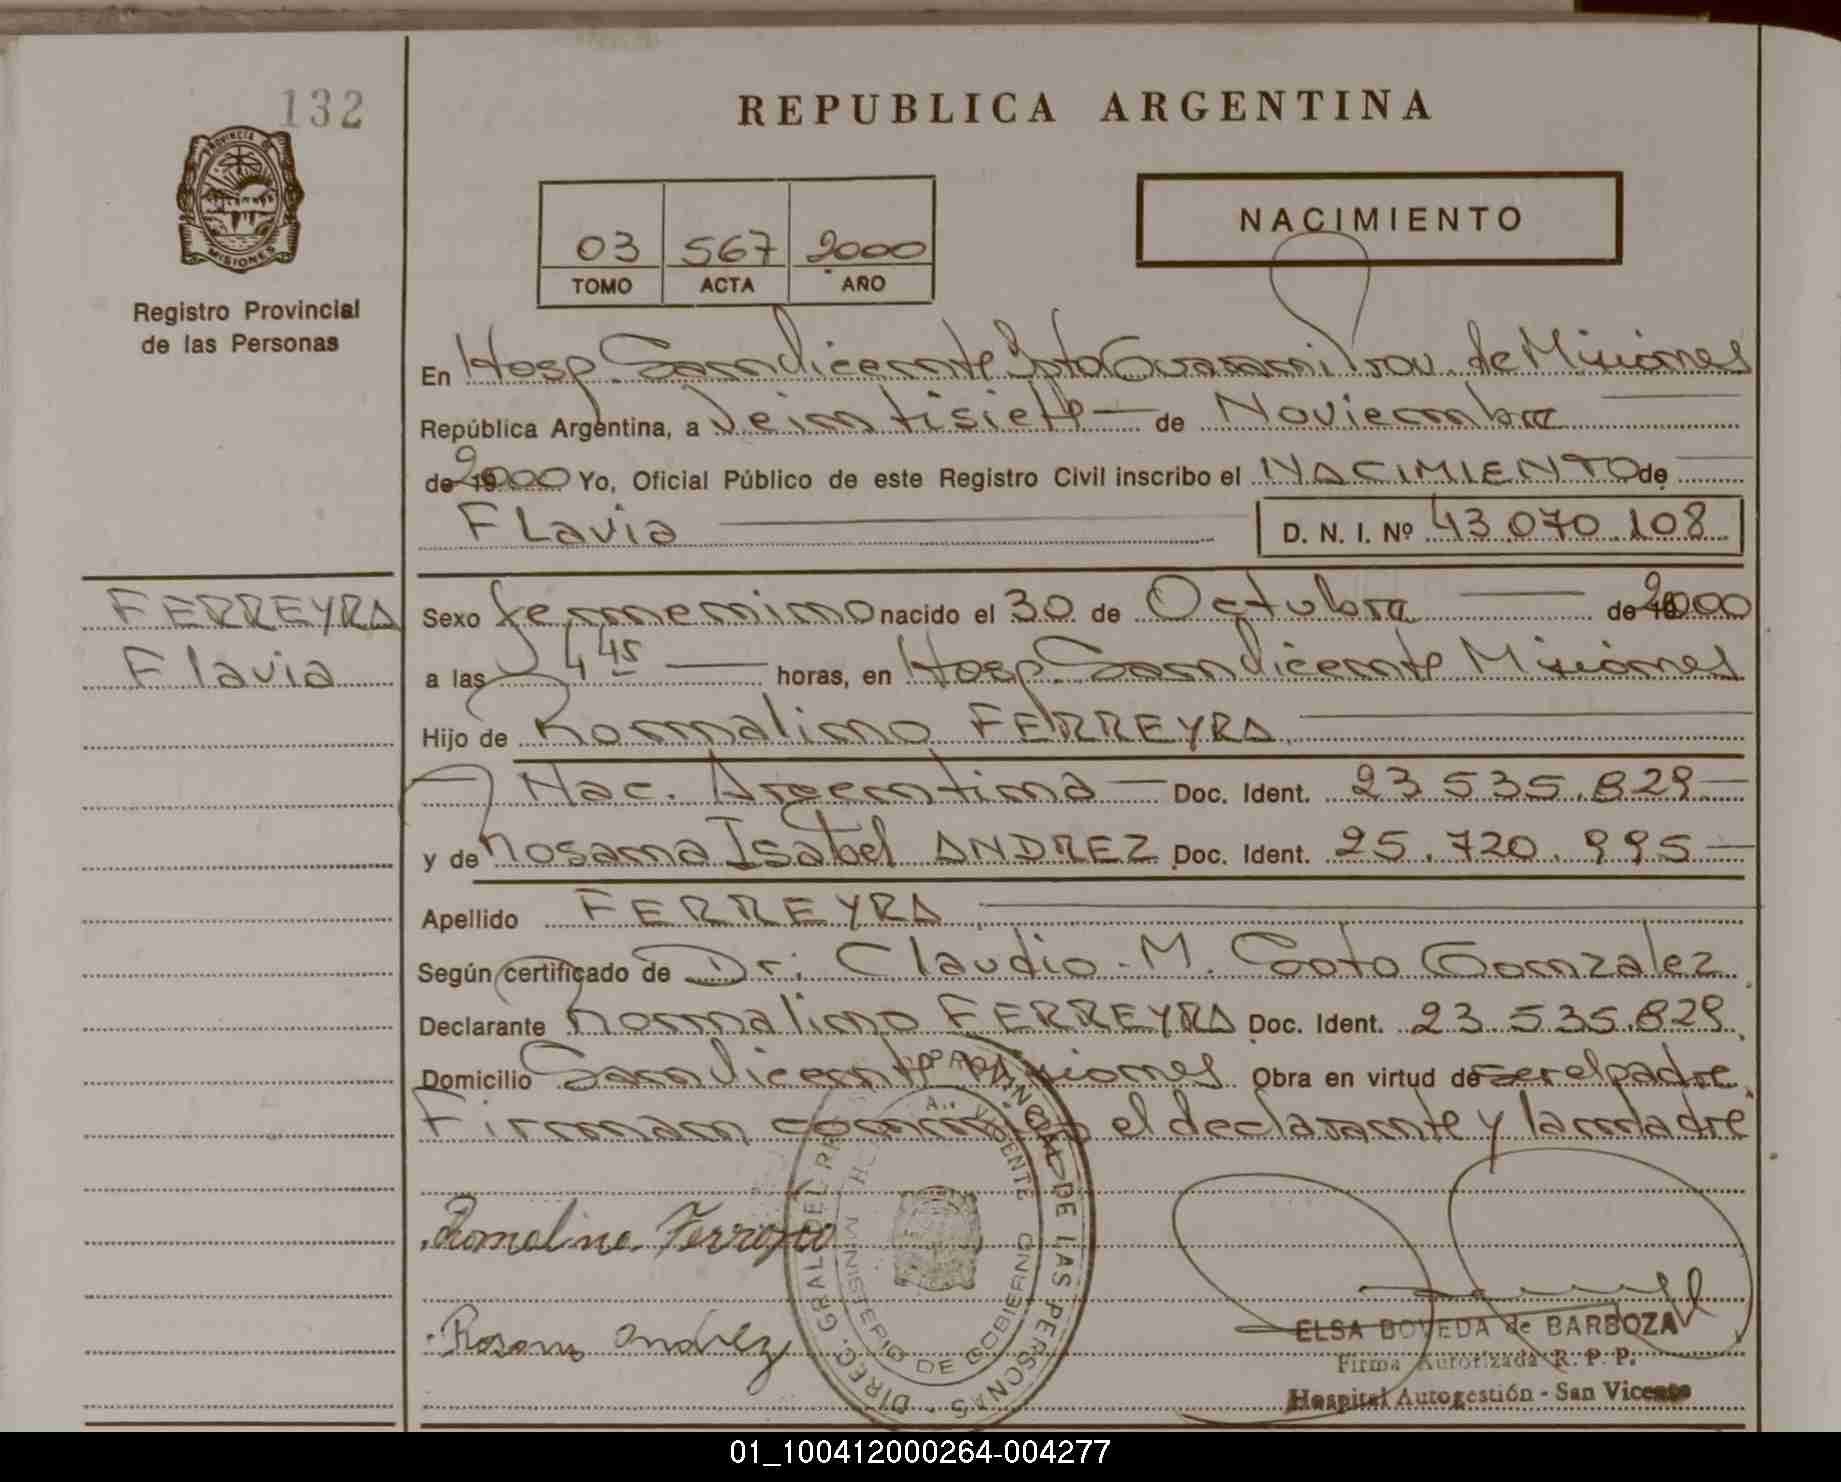 132
PROVINCIA DE
MISIONES
Registro Provincial
de las Personas
FERREYRA
Flavia
REPUBLICA ARGENTINA
03 567 2000
TOMO ACTA AÑO
NACIMIENTO
En Hosp. San Vicente Dpto Guarani Prov. de Misiones
República Argentina, a Veintisiete de Noviembre
de 2000 Yo, Oficial Público de este Registro Civil inscribo el NACIMIENTO de
FLavia D. N. I. Nº 43.070.108
Sexo femenino nacido el 30 de Octubre de 2000
a las 4 45 horas, en Hosp. San Vicente Misiones
Hijo de Romalino FERREYRA
Nac. Argentina Doc. Ident. 23.535.829
y de Rosana Isabel ANDREZ Doc. Ident. 25.720.995
Apellido FERREYRA
Según certificado de Dr. Claudio M. Soto Gonzalez
Declarante Romalino FERREYRA Doc. Ident. 23.535.829
Domicilio San Vicente Misiones Obra en virtud de ser el padre
Firman conmigo el declarante y la madre
Romalino Ferreyra
Rosana Andrez
DIREC. GRAL. DEL REG. PROVINCIAL DE LAS PERSONAS
MINISTERIO DE GOBIERNO
ELSA BOVEDA de BARBOZA
Firma Autorizada R. P. P.
Hospital Autogestión - San Vicente
01_100412000264-004277